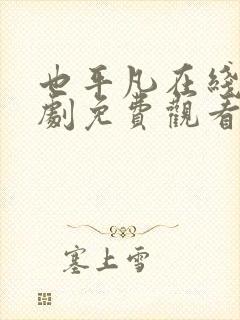 也平凡在綫
劇免費觀看
塞上雪